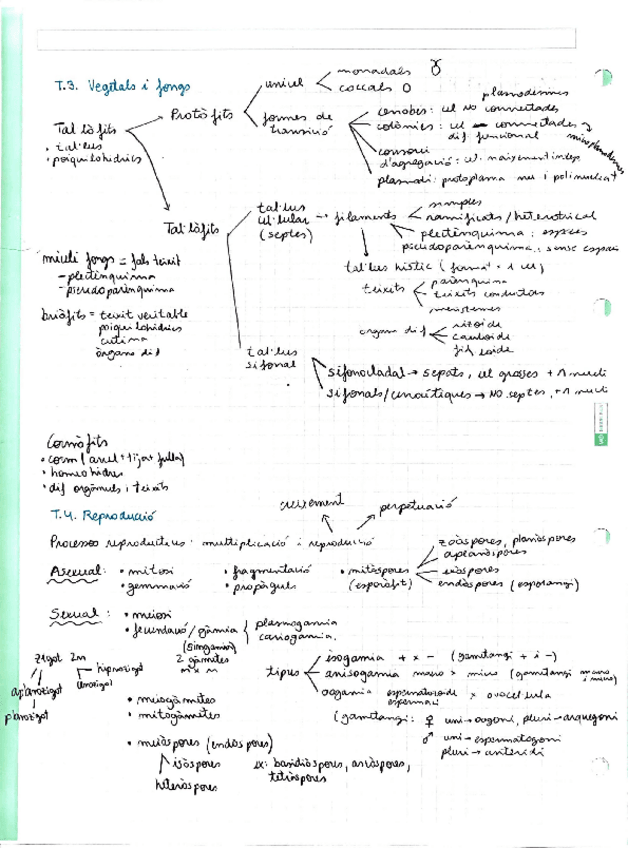 T.3. Vegetals i fongs
unicel
monadals
coccals
Protòfits
formes de
transició
plasmodesmes
cenobis: cel NO connectades
colònies: cel connectades
dif. funcional
microplasmodesmes
consorci
d'agregació: cel. naixement indep.
plasmodi: protoplasma nu i polinucleat
Tal·lòfits
• tal·lus
• poiquilohidrics
Tal·lòfits
tal·lus
cel·lular
(septes)
filaments
simples
ramificats/heterotrical
plectènquima: espècies
pseudoparènquima: sense espais
tal·lus hístic (format + 1 cel)
teixits
parènquima
teixits conductors
meristemes
organs dif
rizoide
cauloide
fil·loide
miceli fongs = fals teixit
- plectènquima
- pseudoparènquima
briòfits = teixit veritable
poiquilohidrics
cutina
òrgans dif
tal·lus
sifonal
sifonocladal → septats, cel grosses + 1 nucli
sifonals/cenocítiques → NO septes, + 1 nucli
Cormòfits
• corm (arrel + tija + fulla)
• homeohidres
• dif orgànuls i teixits
T.4. Reproducció
creixement
perpetuació
Processos reproductius: multiplicació i reproducció
Asexual:
• mitosi
• gemmació
• fragmentació
• propàguls
• mitòspores
(esporòfit)
zoòspores, planòspores
aplanòspores
exòspores
endòspores (esporangi)
Sexual:
• meiosi
• fecundació/gàmia
(singàmia)
plasmogamia
cariogamia.
2 gàmetes
n x n
zigot 2n
hipnozigot
aplanozigot
planozigot
tipus
isogamia + x - (gametangi + i -)
anisogamia macro x micro (gametangi macro i micro)
oogamia espermatozoide x ovocèl·lula
espermaci
(gametangi: ♀ uni → oogoni, pluri → arquegoni
♂ uni → espermatogoni
pluri → anteridi
• meiogàmetes
• mitogàmetes
• meiòspores (endòspores)
isòspores
heteròspores
ex: basidiòspores, ascòspores,
tetràspores